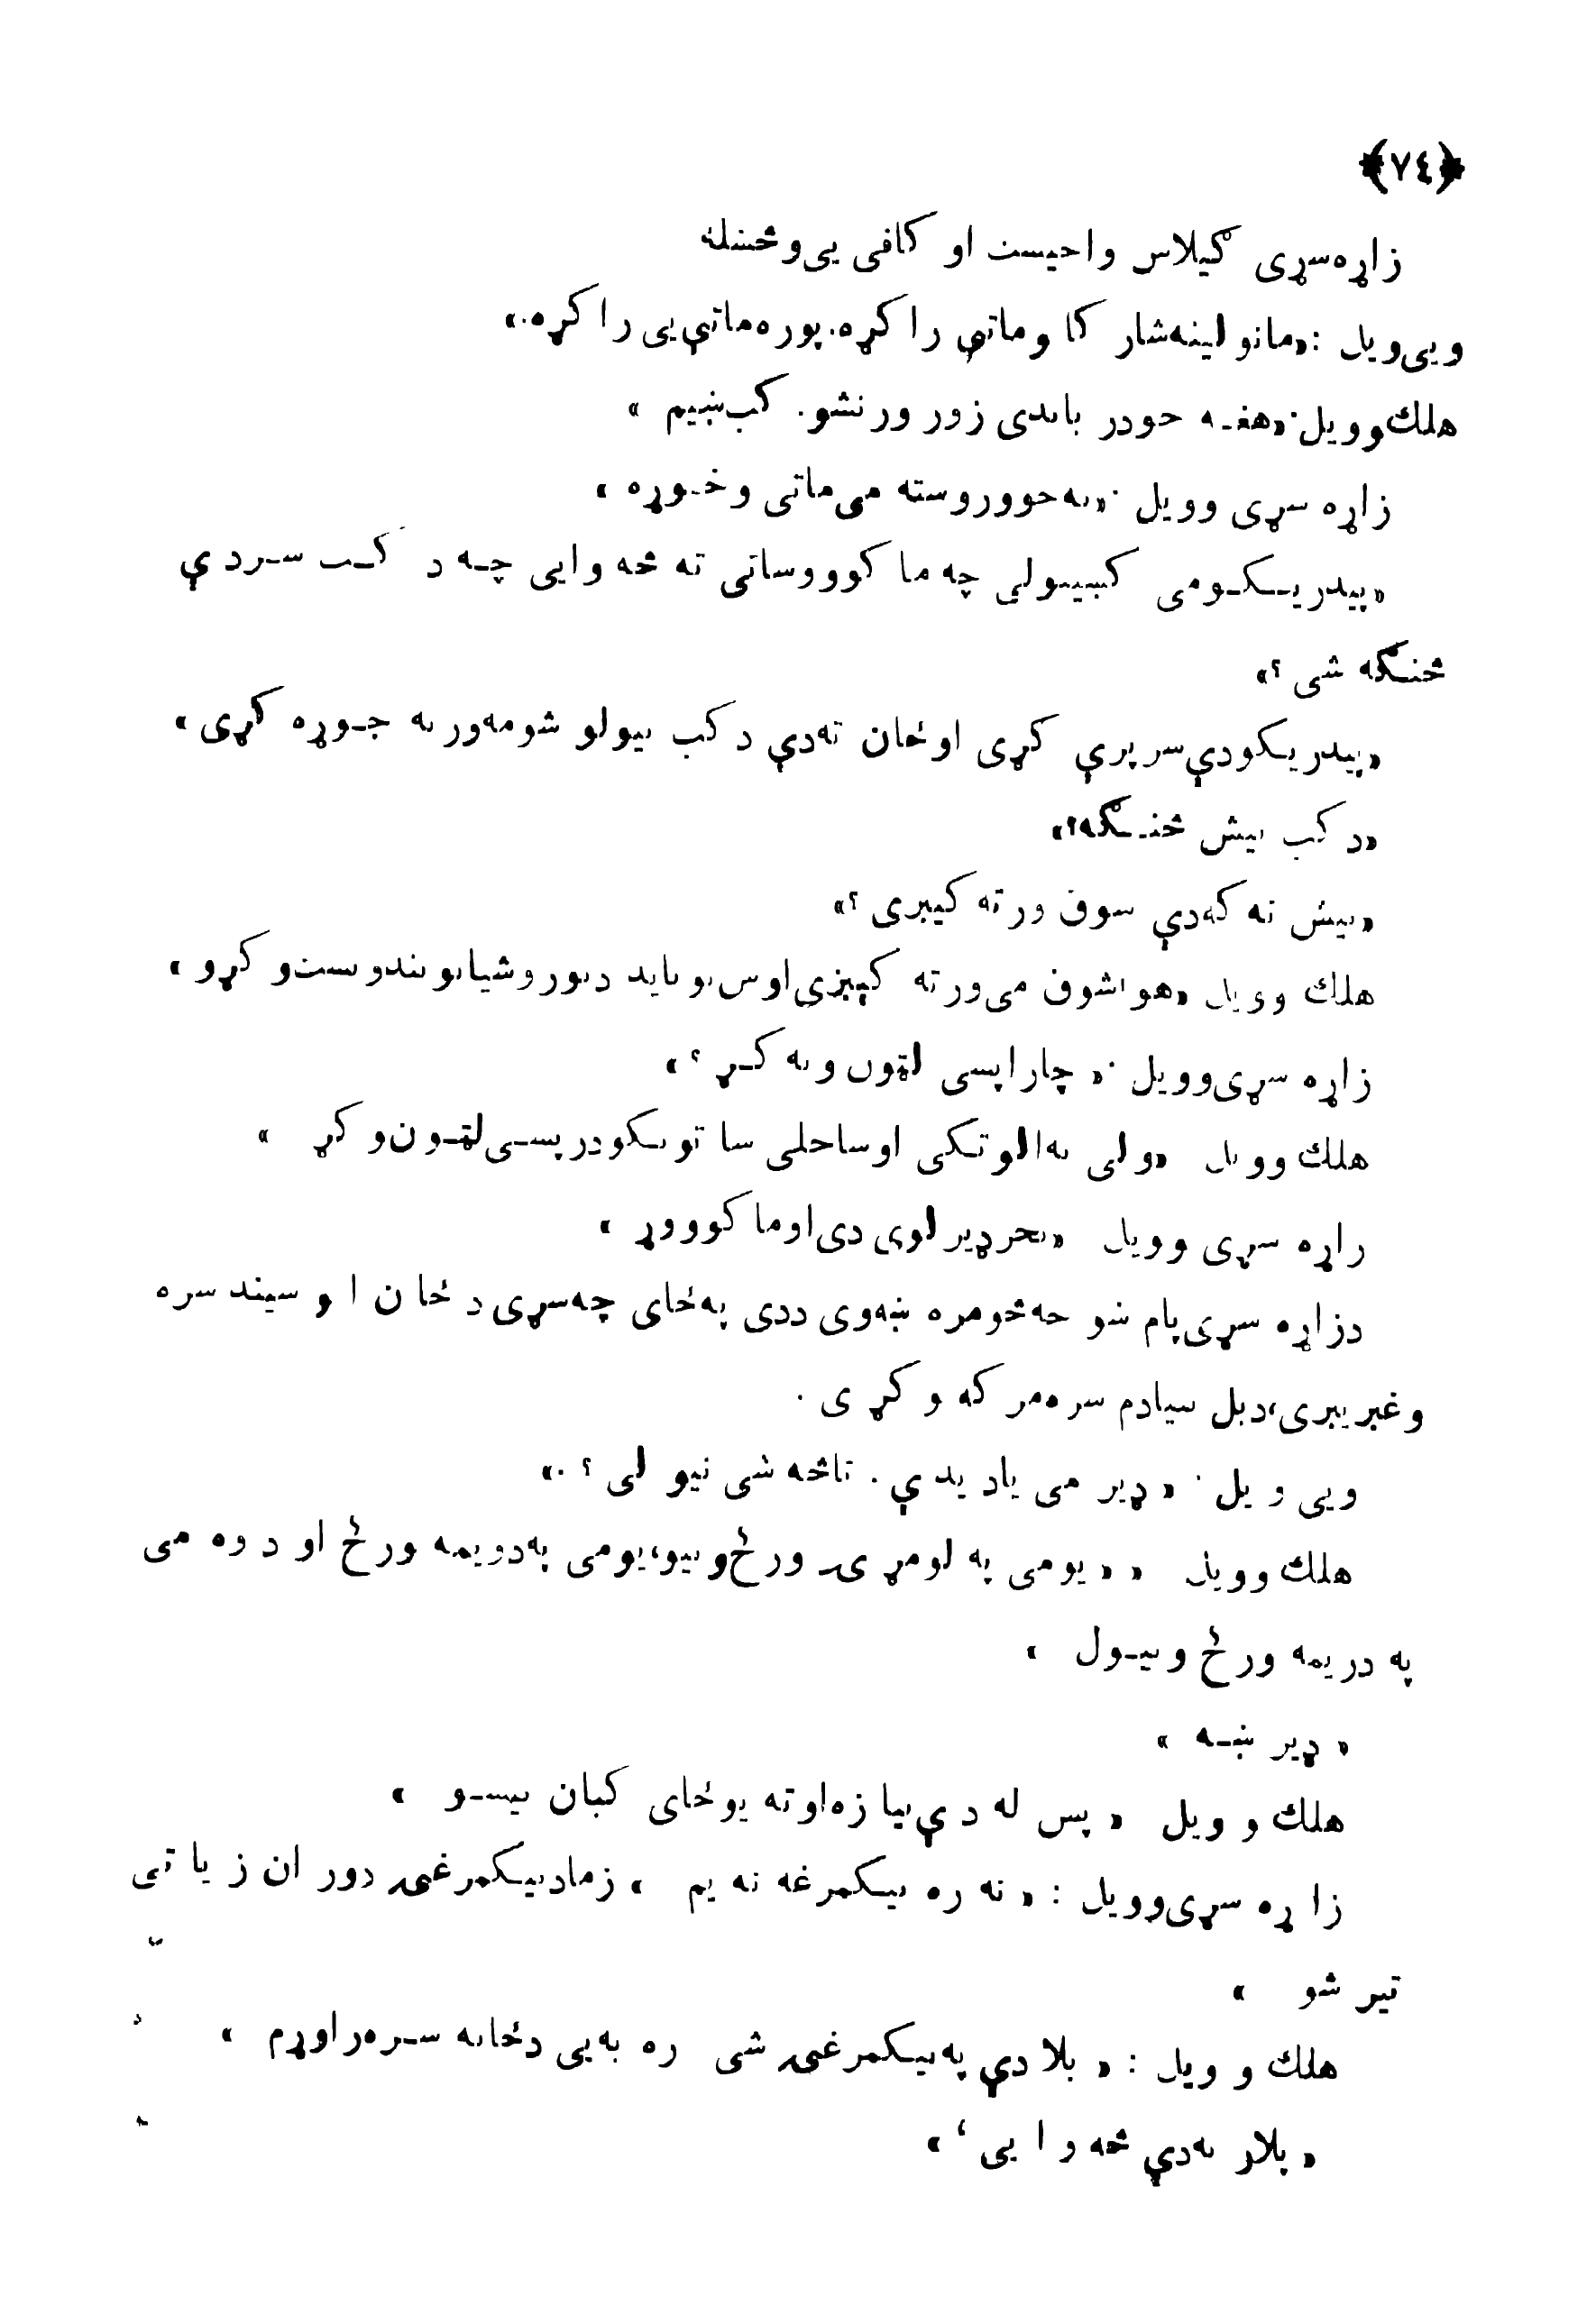 ﴿٧٤﴾
زاړه سړی ګیلاس واخیست او کافی یی وڅښله
ویی ویل : «مانولینه شار کا وماتې را کړه. پوره ماتې یی را کړه.»
هلك وویل: «هغـه خو در باندی زور ور نشو. کب ښییم »
زاړه سړی وویل : «نه خو وروسته می ماتی وخـوړه »
«پیدریـکـومی کښیـولی چه ما کوو وساتی ته څه وایی چـه د کـب سـر دې
څنـګه شی ؟»
«پیدریکو دې سر پرې کړی او ځان ته دې د کب نیولو شومه ور نه جـوړه کړی »
«د کب نیش څنـګه؟»
«نیش نه که دې شوق ورته کیږی ؟»
هلك وویل «هو! شوق می ورته کېږی اوس نو باید د نورو شیانو بندوبست وکړو »
زاړه سړی وویل : « چا راپسی لټون ونه کـړ ؟ »
هلك وویل «ولی نه الوتـکی او ساحلی ساتونـکو در پسـی لټـون وکړ »
زاړه سړی وویل «بحر ډیر لوی دی او ما کوو وړ »
د زاړه سړی پام شو چه څومره ښه وی ددی په ځای چه سړی د ځان او سیند سره
وغږیږی، د بل بنیادم سره مرکه وکړی .
ویی ویل : « ډیر می یادیدې . تا څه شی نیولی ؟ .»
هلك وویل « « یو می په لومړی ورځ ونیو، یو می په دویمه ورځ او دوه می
په دریمه ورځ ونیـول »
« ډیر ښـه »
هلك وویل « پس له دې بیا زه او ته یو ځای کبان نیسـو »
زاړه سړی وویل : « نه زه نیـکمرغه نه یم ، زما د نیـکمرغۍ دوران زیاتی
تیر شو »
هلك وویل : « بلا دې په نیـکمرغۍ شی زه به یی د ځانه سـره راوړم »
« پلار به دې څه وایی ؟ »